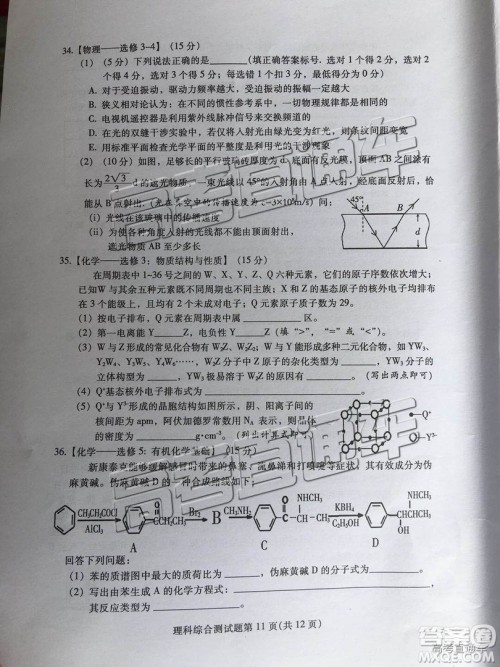 34.【物理——选修3-4】(15分)
(1)(5分)下列说法正确的是______(填正确答案标号. 选对1个得2分, 选对2
个得4分, 选对3个得5分; 每选错1个扣3分, 最低得分为0分)
A. 对于受迫振动, 驱动力频率越大, 受迫振动的振幅一定越大
B. 狭义相对论认为: 在不同的惯性参考系中, 一切物理规律都是相同的
C. 电视机遥控器是利用发出紫外线脉冲信号来变换频道的
D. 在光的双缝干涉实验中, 若仅将入射光由绿光变为红光, 则条纹间距变宽
E. 用标准平面检查光学平面的平整程度是利用光的干涉现象
(2)(10分)如图, 足够长的平行玻璃砖厚度为d, 底面有反光膜, 顶面AB
长为 2√3/3 d的遮光物质. 一束光线以45°的入射角由A点入射, 经底面反射后, 恰
能从B点射出.
(i) 光线在该玻璃中的传播速度
(ii) 为使各种角度入射的光线都不能从顶面射出,
遮光物质AB至少多长
45° A B d
35.【化学——选修3: 物质结构与性质】(15分)
在周期表中1~36号之间的W、X、Y、Z、Q六种元素, 它们的原子序数依次增大,
已知W与其余五种元素既不同周期也不同主族, X、Y、Z的基态原子的核外电子均排布
在3个能级上, 且它们之间形成的多种化合物, Q元素原子质子数为29。
(1)按电子排布, Q元素在周期表中属______区。
(2)第一电离能Y______Z, 电负性Y______Z(填“>”、“<”或“=”)。
(3)W与Z形成的常见化合物有W₂Z; W与Y能形成多种二元化合物, 如YW₃、
Y₂W₄、Y₃W₅、Y₄W₆……, W₂Z分子中Z的杂化类型为______, YW₃分子的
立体构型为______, W₂Z易液化的原因有______。(写出两点即可)
(4)Q⁺基态核外电子排布式为______。
(5)Q⁺与Y³⁻形成的晶胞结构如图所示, 阴、阳离子间的
核间距为a pm, 阿伏加德罗常数用Nₐ表示, 则该晶体
的密度为______g·cm⁻³.(列出计算式即可)
Q⁺
Y³⁻
36.【化学——选修5: 有机化学基础】(15分)
新康泰克能够缓解感冒时带来的鼻塞、流鼻涕和打喷嚏等症状, 其有效成分为伪
麻黄碱。伪麻黄碱D的一种合成路线如图:
CH₃CH₂COCl AlCl₃ COCH₂CH₃ Br₂ B CH₃NH₂ O NHCH₃ CH₃ KBH₄ C₂H₅OH NHCH₃ CH₃ OH
A C D
回答下列问题:
(1)苯的质谱图中最大的质荷比为______, 伪麻黄碱D的分子式为______。
(2)写出由苯生成A的化学方程式: ______,
其反应类型为______。
理科综合测试题第11页(共12页)
高考直通车
答案圈